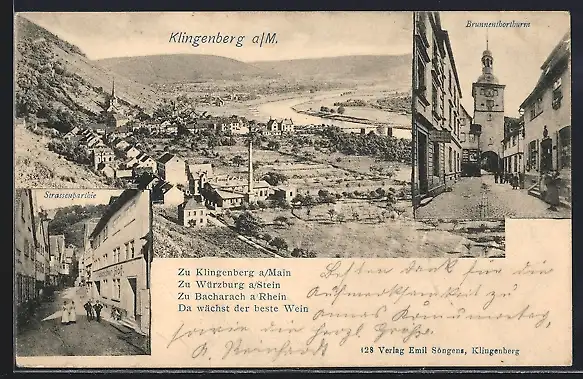 Klingenberg a/M.
Brunnenthorthurm
Strassenparthie
Zu Klingenberg a/Main
Zu Würzburg a/Stein
Zu Bacharach a/Rhein
Da wächst der beste Wein
Besten Dank für die
Aufmerksamkeit zu
sowie die herzl. Grüße.
128 Verlag Emil Söngens, Klingenberg